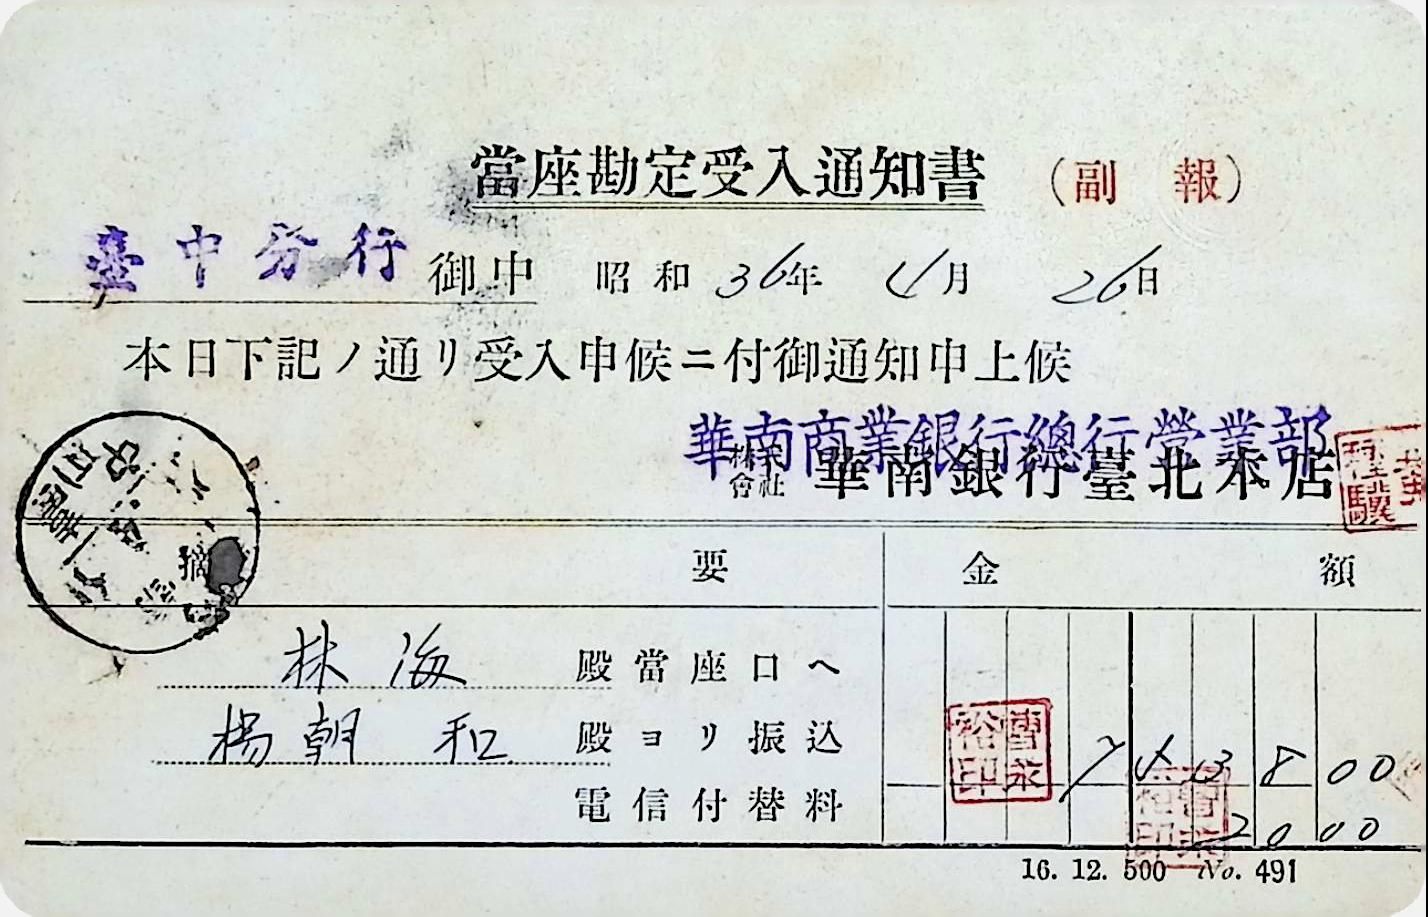 當座勘定受入通知書 (副 報)
臺中分行 御中 昭和 36年 4月 26日
本日下記ノ通リ受入申候ニ付御通知申上候
華南商業銀行總行營業部
株式會社 華南銀行臺北本店
摘 要 金 額
林海 殿當座口ヘ
楊朝和 殿ヨリ振込 7438 00
電信付替料 20 00
曹永裕印
16. 12. 500 No. 491